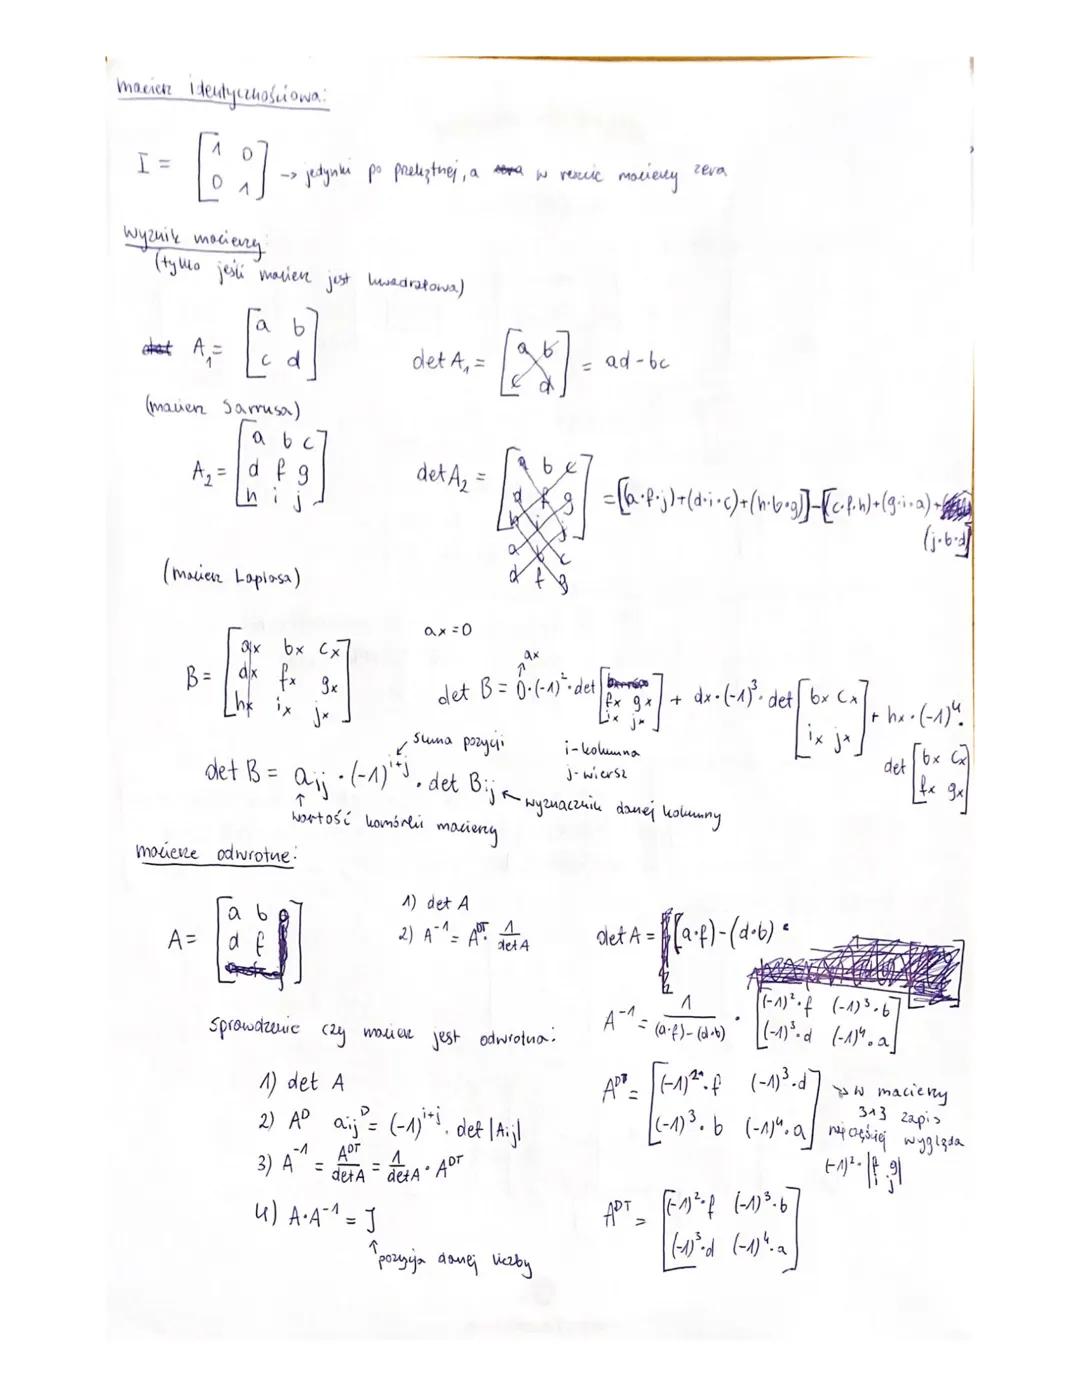 macierz identycznościowa:
I = [1 0
0 1] -> jedynki po przekątnej, a w reszcie macierzy zera
Wyznik macierzy:
(tylko jeśli macierz jest kwadratowa)
A₁ = [a b
c d]
det A₁ = [a b
c d] = ad - bc
(macierz Sarrusa)
A₂ = [a b c
d f g
h i j]
det A₂ = [a b c
d f g
h i j]
a b c
d f g
= [(a·f·j)+(d·i·c)+(h·b·g)]-[(c·f·h)+(g·i·a)+
(j·b·d)]
(macierz Laplasa)
B = [ax bx cx
dx fx gx
hx ix jx]
ax = 0
ax
↑
det B = 0·(-1)²·det [fx gx
ix jx] + dx·(-1)³·det [bx cx
ix jx] + hx·(-1)⁴·
det [bx cx
fx gx]
suma pozycji
i - kolumna
j - wiersz
det B = aij · (-1)^i+j · det Bij ← wyznacznik danej kolumny
↑
wartość komórki macierzy
macierze odwrotne:
A = [a b
d f]
1) det A
2) A⁻¹ = A^DT · 1/det A
det A = [(a·f)-(d·b)
A⁻¹ = 1/(a·f)-(d·b) · [(-1)²·f (-1)³·b
(-1)³·d (-1)⁴·a]
sprawdzenie czy macierz jest odwrotna:
1) det A
2) A^D aij^D = (-1)^i+j · det |Aij|
3) A⁻¹ = A^DT/det A = 1/det A · A^DT
4) A·A⁻¹ = I
↑ pozycja danej liczby
A^D = [(-1)²·f (-1)³·d
(-1)³·b (-1)⁴·a] -> w macierzy
3x3 zapis
najczęściej wygląda
(-1)²·|f g
i j|
A^DT = [(-1)²·f (-1)³·b
(-1)³·d (-1)⁴·a]